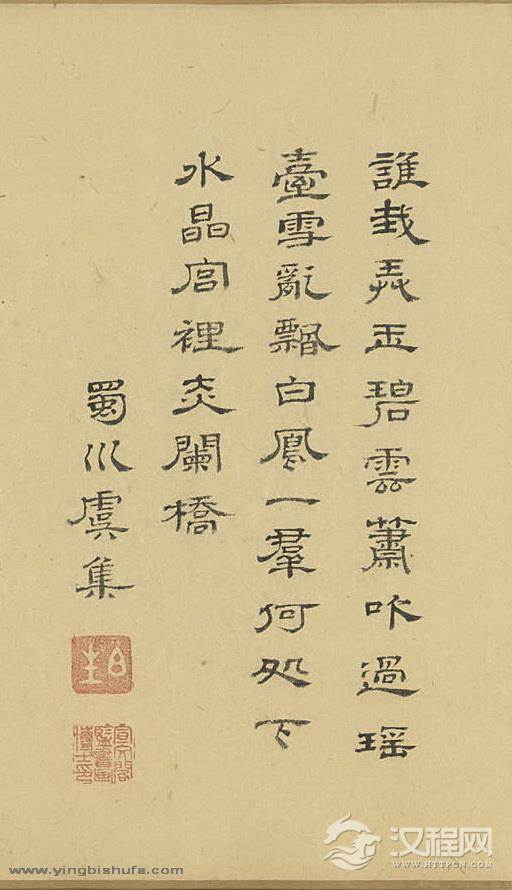 誰栽弄玉碧雲蕭吹過瑤
臺雪亂飄白鳳一羣何処下
水晶宫裡赤闌橋
蜀川虞集
www.yingbishufa.com
汉程网
WWW.HTTPCN.COM